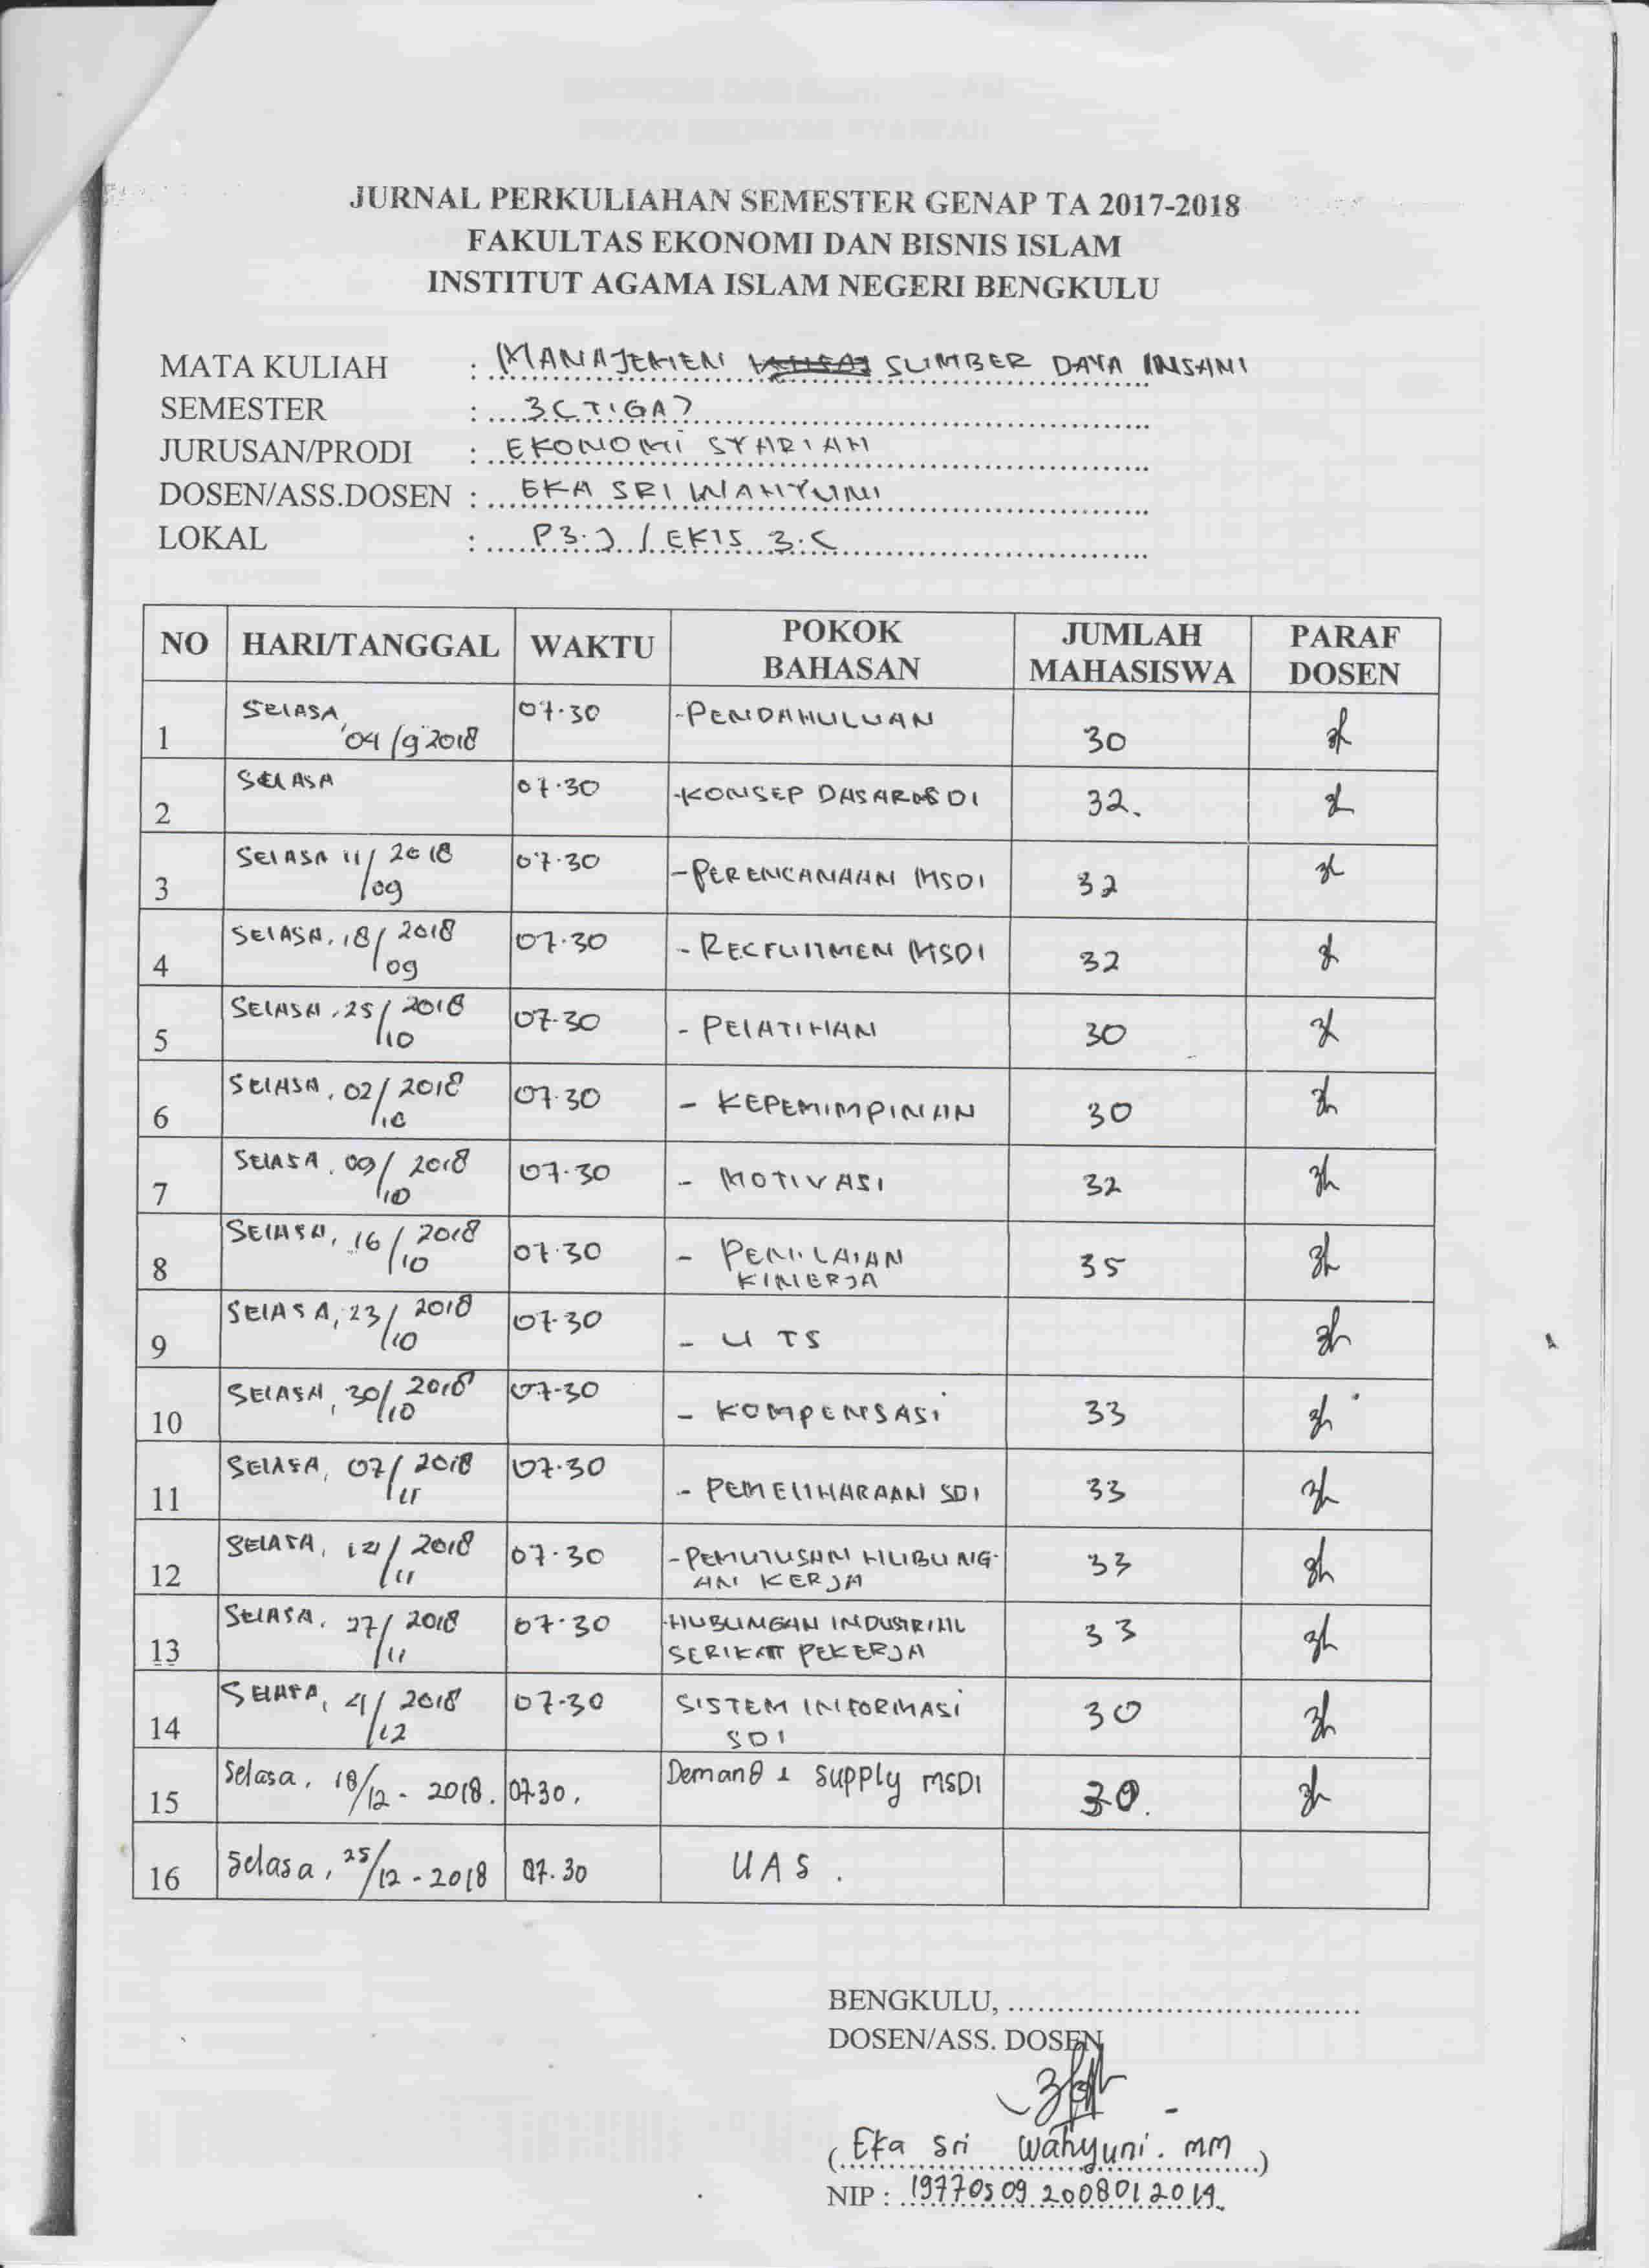 JURNAL PERKULIAHAN SEMESTER GENAP TA 2017-2018
FAKULTAS EKONOMI DAN BISNIS ISLAM
INSTITUT AGAMA ISLAM NEGERI BENGKULU
MATA KULIAH : MANAJEMEN SUMBER DAYA INSANI
SEMESTER : 3 (TIGA)
JURUSAN/PRODI : EKONOMI SYARIAH
DOSEN/ASS.DOSEN : EKA SRI WAHYUNI
LOKAL : P3.J / EKIS 3.C
NO HARI/TANGGAL WAKTU POKOK BAHASAN JUMLAH MAHASISWA PARAF DOSEN
1 SELASA, 04/9 2018 07.30 -PENDAHULUAN 30
2 SELASA 07.30 -KONSEP DASAR SDI 32.
3 SELASA 11/09 2018 07.30 -PERENCANAAN MSDI 32
4 SELASA, 18/09 2018 07.30 - RECRUITMEN MSDI 32
5 SELASA, 25/10 2018 07.30 - PELATIHAN 30
6 SELASA, 02/10 2018 07.30 - KEPEMIMPINAN 30
7 SELASA, 09/10 2018 07.30 - MOTIVASI 32
8 SELASA, 16/10 2018 07.30 - PENILAIAN KINERJA 35
9 SELASA, 23/10 2018 07.30 - UTS
10 SELASA, 30/10 2018 07.30 - KOMPENSASI 33
11 SELASA, 07/11 2018 07.30 - PEMELIHARAAN SDI 33
12 SELASA, /11 2018 07.30 -PEMUTUSAN HUBUNG-
AN KERJA 33
13 SELASA, 27/11 2018 07.30 -HUBUNGAN INDUSTRIAL
SERIKAT PEKERJA 33
14 SELASA, 4/12 2018 07.30 SISTEM INFORMASI
SDI 30
15 Selasa, 18/12 - 2018. 07.30. Demand & supply MSDI 30.
16 Selasa, 25/12 - 2018 07.30 UAS.
BENGKULU, ....................................
DOSEN/ASS. DOSEN
(Eka Sri Wahyuni. MM)
NIP : 19770509 200801 2014